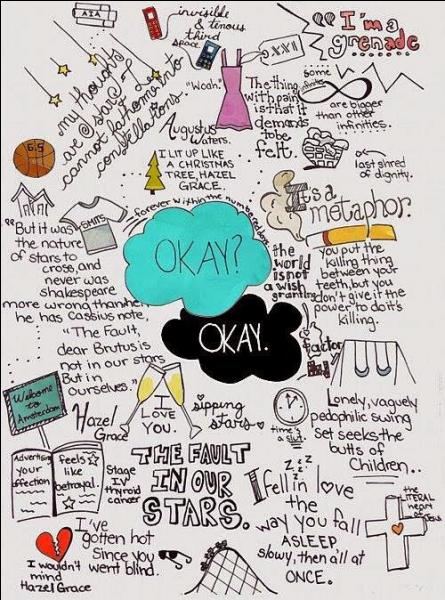 AIA
invisible
& tenous
third
space
XXII
"I'm a
grenade
my thoughts
are stars I
cannot fathom into
constellations.
"Woah."
The thing
with pain
is that it
demands
to be
felt.
some
infinities
are bigger
than other
infinities.
Augustus
Waters.
I LIT UP LIKE
A CHRISTMAS
TREE, HAZEL
GRACE.
last shred
of dignity.
It's a
metaphor.
forever within the numbered days
SMITS
"But it was
the nature
of stars to
cross, and
never was
Shakespeare
more wrong than when
he has Cassius note,
"The Fault,
dear Brutus is
not in our stars
But in
ourselves."
OKAY?
OKAY.
the
world
is not
a wish
granting
factory
you put the
killing thing
between your
teeth, but you
don't give it the
power to do its
killing.
Welcome
to
Amsterdam
I
LOVE
YOU.
Hazel
Grace
sipping
stars
time is
a slut.
Lonely, vaguely
pedophilic swing
set seeks the
butts of
Children..
Advertising
your
affection
feels
like
betrayal.
Stage
IV
thyroid
cancer
THE FAULT
IN OUR
STARS.
z z z
I fell in love
the
way you fall
ASLEEP
slowy, then all at
ONCE.
the
LITERAL
heart
of
Jesus
I've
gotten hot
Since you
went blind.
I wouldn't
mind
Hazel Grace